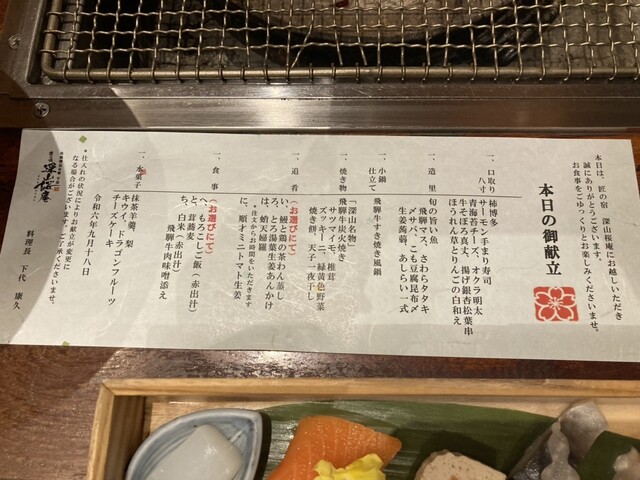 本日は、匠の宿 深山桜庵にお越しいただき
誠にありがとうございます。
お食事をごゆっくりとお楽しみくださいませ。
本日の御献立
一、口取り
八寸
柿博多
サーモン手まり寿司
青海苔チーズ、オクラ明太
牛ごぼう丸、揚げ銀杏松葉串
ほうれん草とりんごの白和え
一、造里
旬の旨い魚
飛騨マス、さわらタタキ
〆サバ、こも豆腐昆布〆
生姜蒟蒻、あしらい一式
一、小鍋
仕立て
飛騨牛すき焼き風鍋
一、焼き物
「深山名物」
飛騨牛炭火焼き
サツマイモ、椎茸
ズッキーニ、緑黄色野菜
焼き餅、天子一夜干し
一、追肴
(お選びにて)
い、鰻と鶏の茶わん蒸し
ろ、とろ湯葉生姜あんかけ
は、蛸天婦羅
※注文からお時間をいただきます
に、順才ミニトマト生姜
一、食事
(お選びにて)
へ、もろこしご飯(赤出汁)
と、茸蕎麦
ち、白米(赤出汁)
飛騨牛肉味噌添え
一、本菓子
抹茶羊羹、梨
キウイ、ドラゴンフルーツ
チーズケーキ
令和六年九月十八日
料理長 下代 康久
*仕入れの状況によりお献立が変更に
なる場合がございます。ご了承くださいませ。
深山桜庵